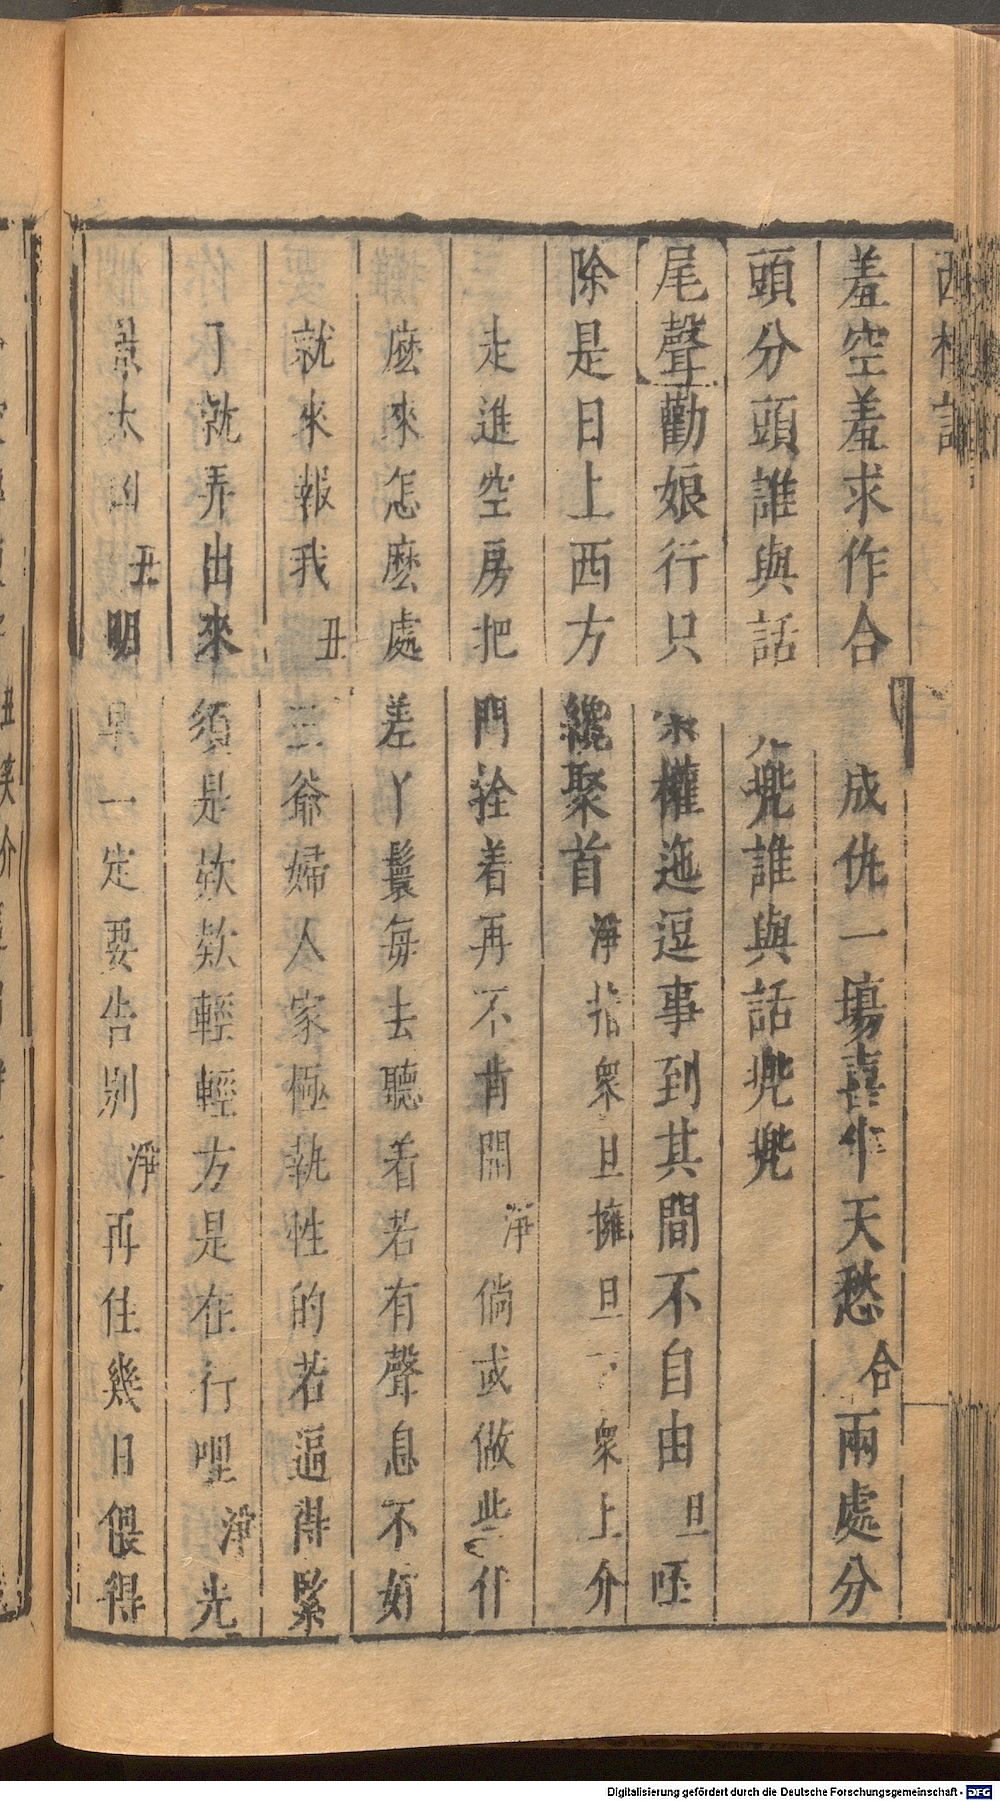 羞空羞求作合成仇一塲喜作天愁合兩處分
頭分頭誰與話兜誰與話兜兜
尾聲勸娘行只索權迤逗事到其間不自由旦呸
除是日上西方纔聚首淨指衆旦擁旦下衆上介
走進空房把門拴着再不肯開淨倘或做些什
麽來怎麽處差丫鬟每去聽着若有聲息不妨
就來報我丑三爺婦人家極執性的若逼得緊
了就弄出來須是欵欵輕輕方是在行哩淨光
景太凶丑明早一定要告別淨再住幾日偎得
Digitalisierung gefördert durch die Deutsche Forschungsgemeinschaft - DFG